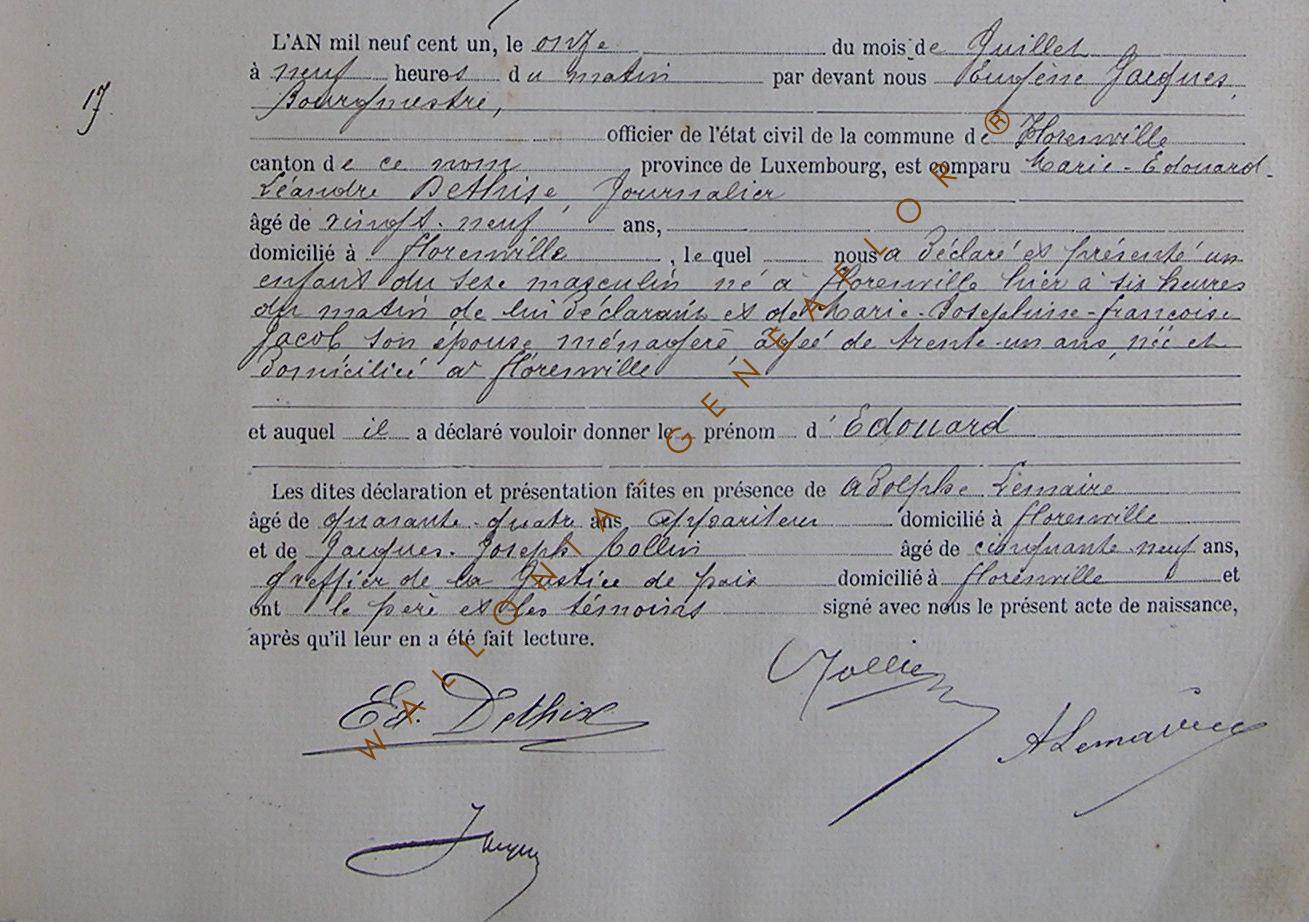 L'AN mil neuf cent un, le onze du mois de Juillet
à neuf heures du matin par devant nous Eugène Jacques,
17.
Bourgmestre,
officier de l'état civil de la commune de Florenville
canton de ce nom province de Luxembourg, est comparu Marie-Edouard-
Léandre Dethise, Journalier
âgé de vingt-neuf ans,
domicilié à Florenville, lequel nous a déclaré et présenté un
enfant du sexe masculin né à Florenville hier à six heures
du matin de lui déclarant et de Marie-Joséphine-Françoise
Jacob son épouse ménagère âgée de trente-un ans, née et
domiciliée à Florenville
et auquel il a déclaré vouloir donner le prénom d'Edouard
Les dites déclaration et présentation faites en présence de Adolphe Lemaire
âgé de quarante-quatre ans appariteur domicilié à Florenville
et de Jacques-Joseph Collin âgé de cinquante-neuf ans,
greffier de la Justice de paix domicilié à Florenville et
ont le père et les témoins signé avec nous le présent acte de naissance,
après qu'il leur en a été fait lecture.
Collin
Ed. Dethise
ALemaire
Jacques
WALLONIA GENEAFLOR ®